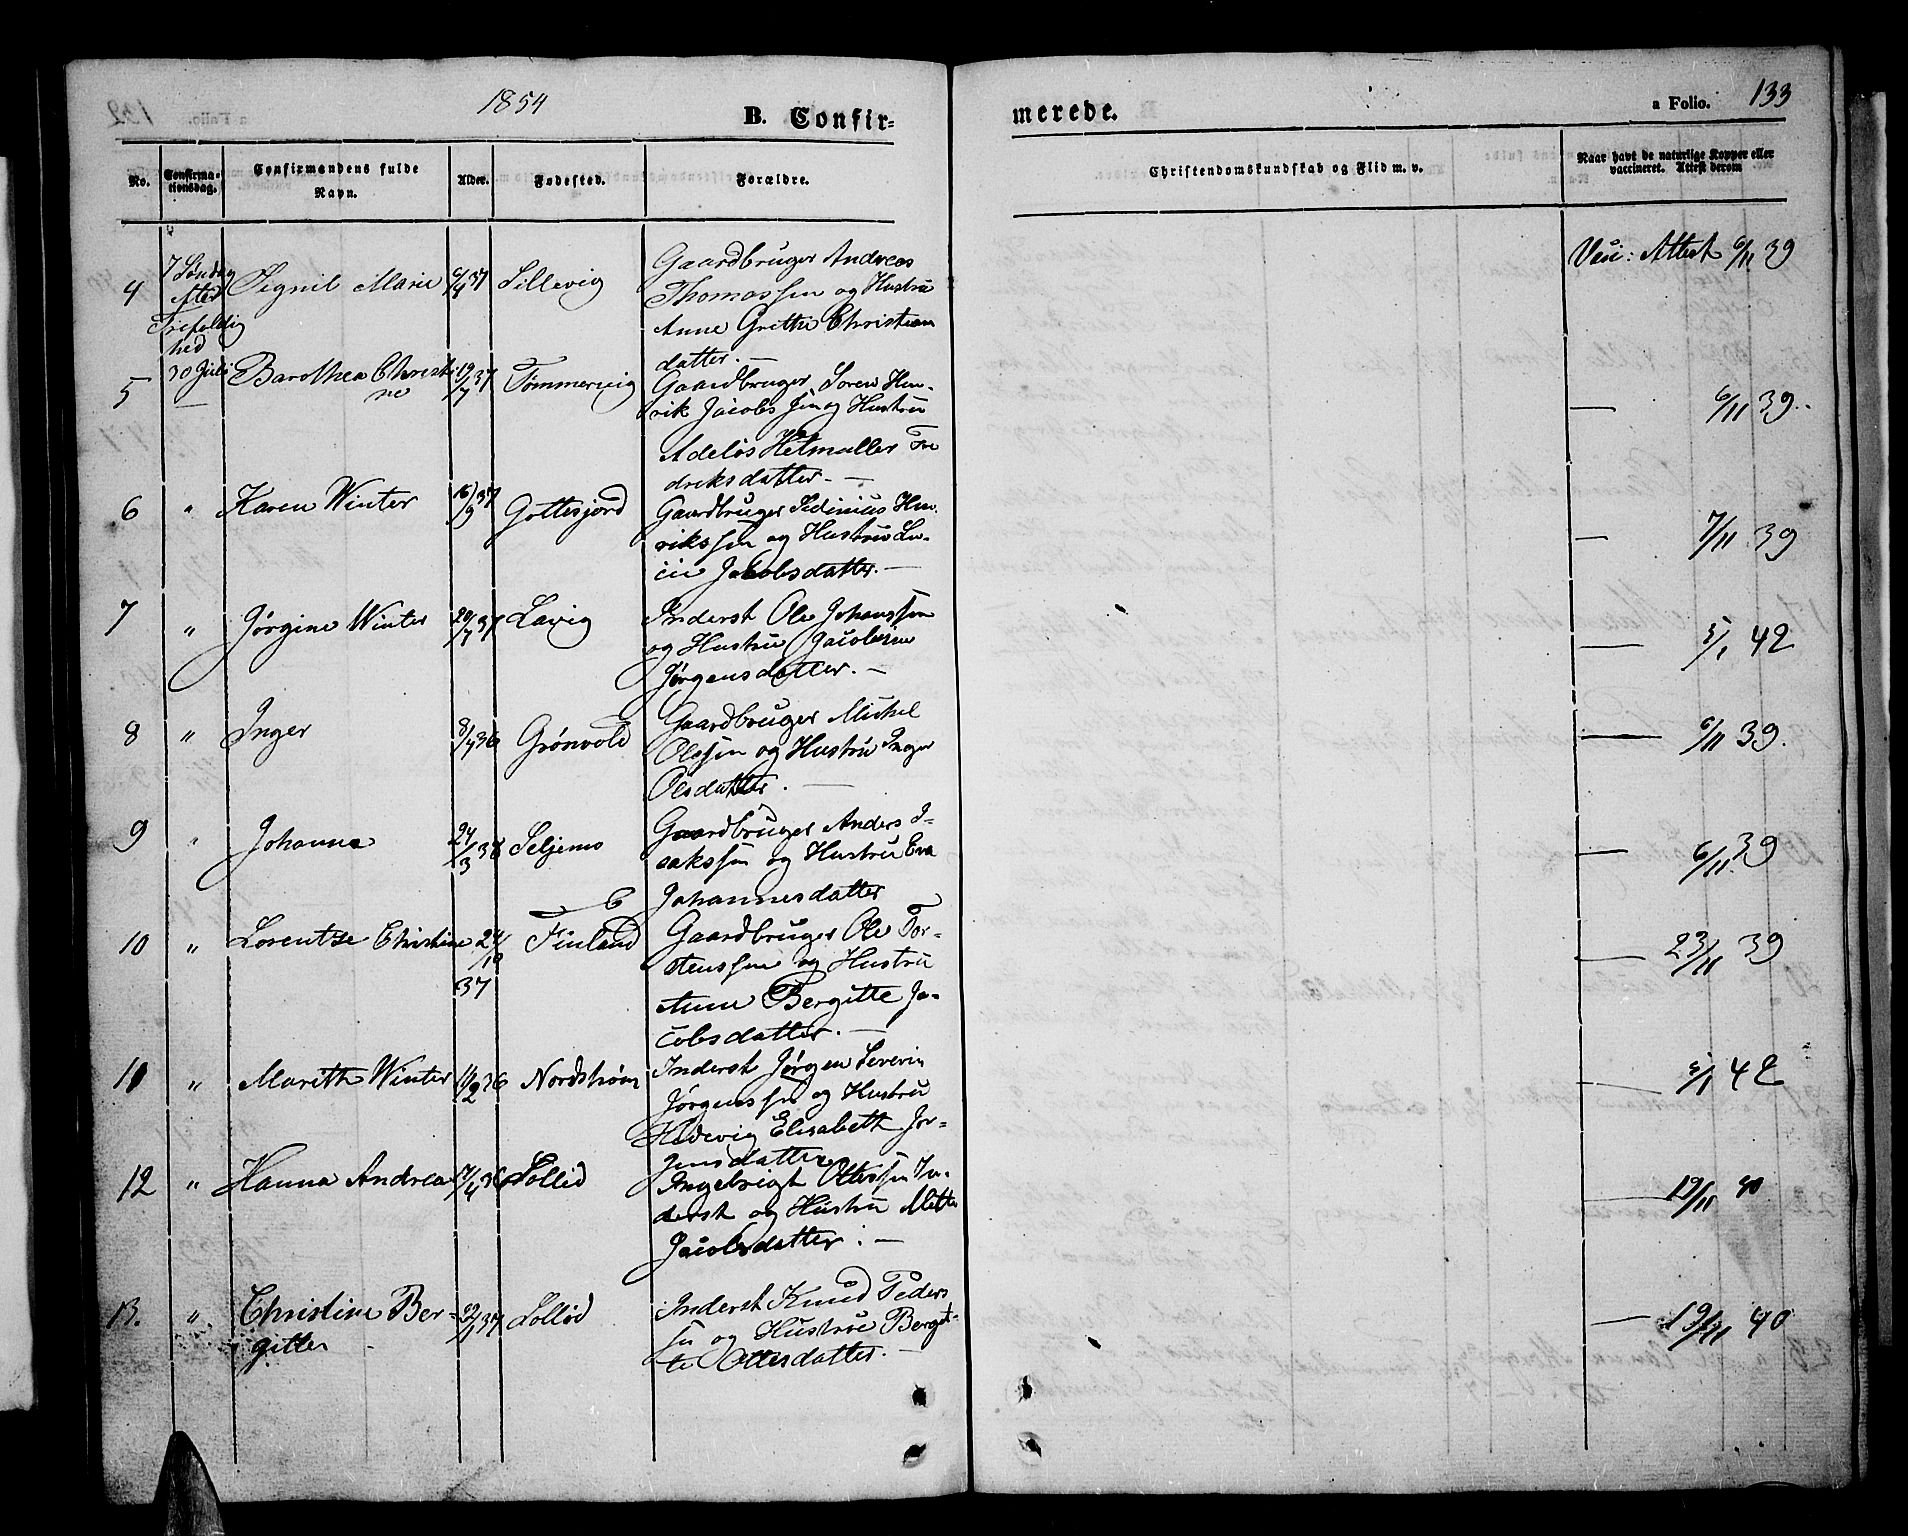 1854
B. Confir-
merede.
a Folio. 133
No.
Confirma-
tionsdag.
Confirmandens fulde
Navn.
Alder.
Fødested.
Forældre.
Christendomskundskab og Flid m. v.
Naar havt de naturlige Kopper eller
vaccineret. Attest derom
4
7 Søndag
efter
Trefoldig
hed
30 Juli
Signil Marie
6/4 37
Lillevig
Gaardbruger Andreas
Thomassen og Hustru
Anne Grethe Christian
datter. —
Vasi: Attest 6/11 39
5
—
Barothea Christi
ne
19/7 37
Tømmervig
Gaardbruger Søren Hen-
rik Jacobs Sen og Hustru
Adelös Hetmuller Fre
driksdatter. —
— 6/11 39.
6 "
Karen Winter
16/9 37
Gottesjord
Gaardbruger Pedinius Hen-
rikssen og Hustru Lu-
cie Jakobsdatter. —
— 7/11 39
7 "
Jørgine Winter
20/7 37
Lavig
Inderst Ole Johanssen
og Hustru Jacobsine
Jørgensdatter. —
— 5/1 42
8 "
Inger
8/7 36
Grønvold
Gaardbruger Michel
Olssen og Hustru Inger
Olsdatter. —
— 6/11 39.
9 "
Johanna
24/3 38
Seljenes
Gaardbruger Anders I-
saakssen og Hustru Eva
Johannesdatter
— 6/11 39
10 "
Lorentze Christine
24/10
37
Finland
Gaardbruger Ole Tor-
stenssen og Hustru
Anne Bergitte Ja-
cobsdatter. —
— 23/11 39
11 "
Mareth Winter
11/2 36
Nordstrøm
Inderst Jørgen Severin
Jørgenssen og Hustru
Hedevig Elisabeth Jør-
gensdatter
— 5/1 42
12 "
Hanna Andrea
17/4 36
Lollid
Ingebrigt Ottessen In-
derst og Hustru Mette
Jacobsdatter. —
— 19/11 40
13. "
Christine Ber-
gitte
22/1 37
Lollid
Inderst Knud Peders
sen og Hustru Berget-
te Ottesdatter. —
— 19/11 40